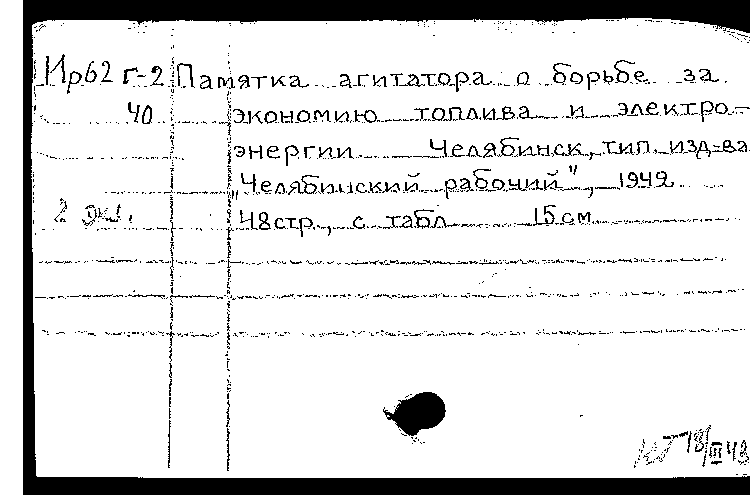 Ир62 г-2 Памятка агитатора о борьбе за
40 экономию топлива и электро-
энергии Челябинск, тип. изд-ва
"Челябинский рабочий", 1942
2 экз. 48 стр., с табл 15 см
18/III 43